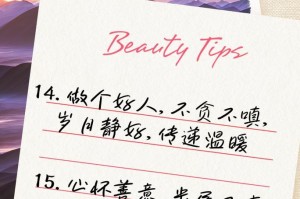 Beauty Tips
14. 做个好人，不贪不嗔，
岁月静好，传递温暖
15. 心怀善意